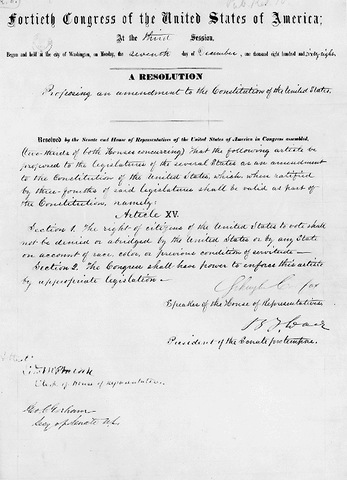 Fortieth Congress of the United States of America;
At the third Session,
Begun and held in the city of Washington, on Monday, the seventh day of December, one thousand eight hundred and sixty-eight.
A RESOLUTION
Proposing an amendment to the Constitution of the United States.
Resolved by the Senate and House of Representatives of the United States of America in Congress assembled,
(two-thirds of both Houses concurring) That the following article be
proposed to the legislatures of the several States as an amendment
to the Constitution of the United States, which, when ratified
by three-fourths of said legislatures shall be valid as part of
the Constitution, namely:
Article XV.
Section 1. The right of citizens of the United States to vote shall
not be denied or abridged by the United States or by any State
on account of race, color, or previous condition of servitude—
Section 2. The Congress shall have power to enforce this article
by appropriate legislation—
Schuyler Colfax
Speaker of the House of Representatives
President of the Senate pro tempore.
Attest
Clerk of House of Representatives
Geo. C. Gorham
Secy of Senate U.S.